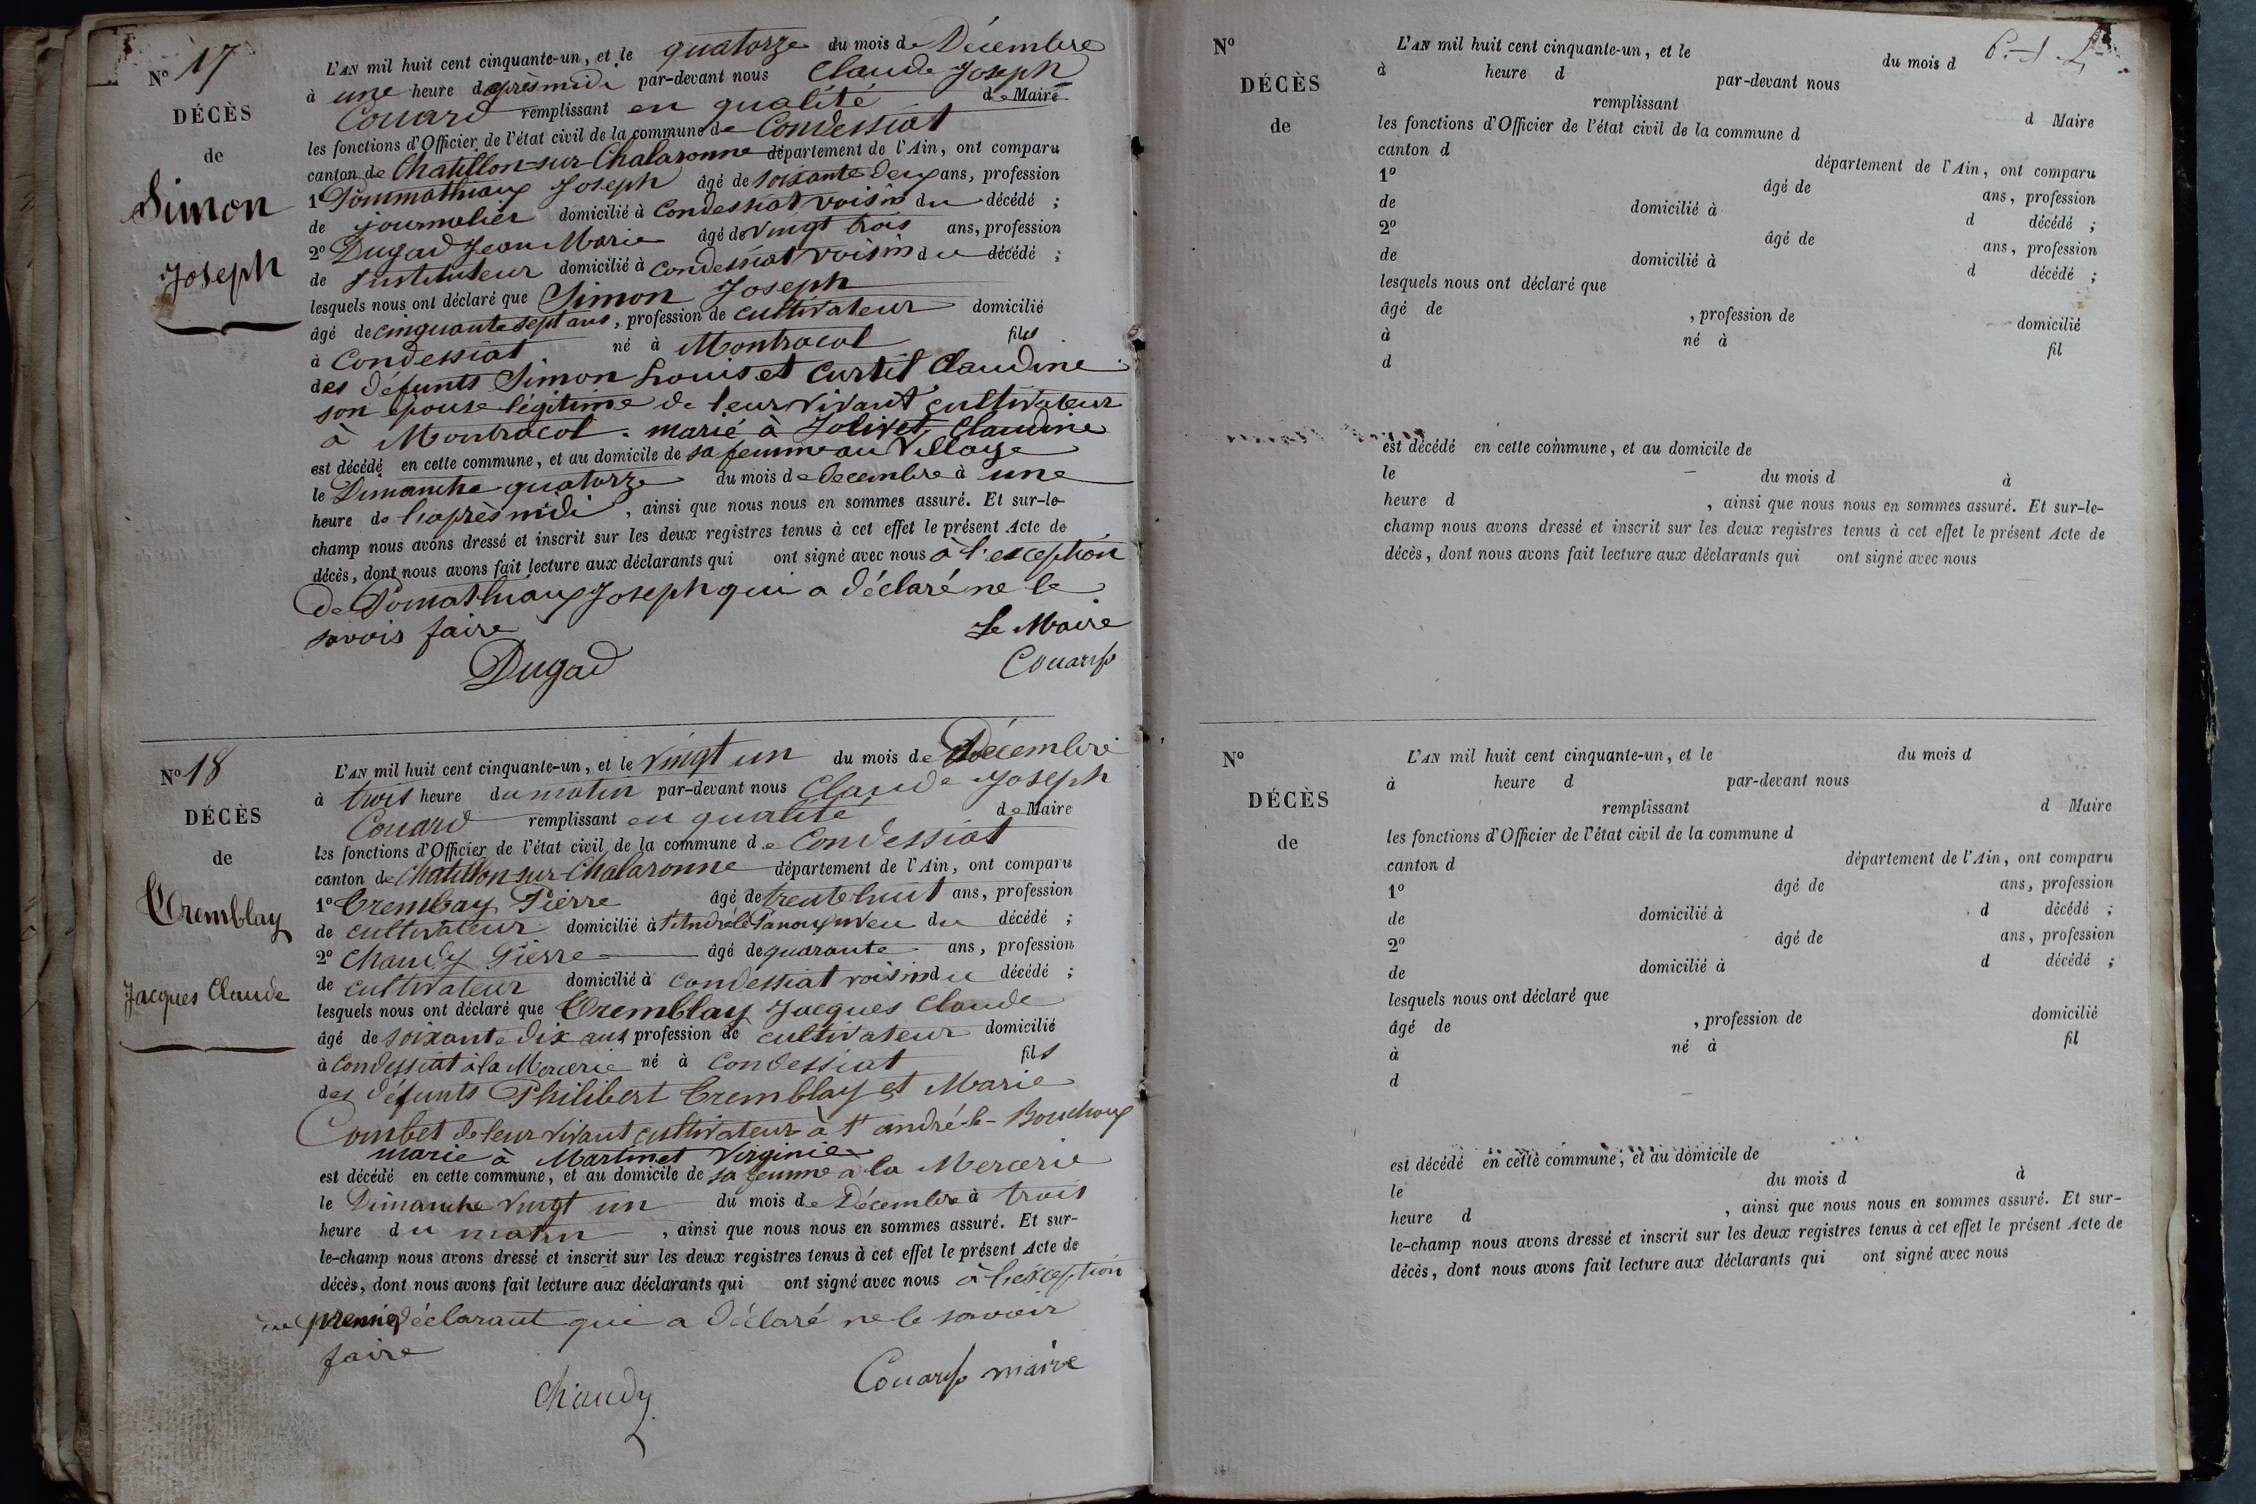 N° 17
DÉCÈS
de
Simon
Joseph
L'AN mil huit cent cinquante-un, et le quatorze du mois de Décembre
à une heure d après midi par-devant nous Claude Joseph
Couard remplissant en qualité de Maire
les fonctions d'Officier de l'état civil de la commune de Condessiat
canton de Chatillon-sur-Chalaronne département de l'Ain, ont comparu
1° Pommathiaux Joseph âgé de soixante deux ans, profession
de journalier domicilié à Condessiat voisin du décédé ;
2° Dugad Jean Marie âgé de vingt trois ans, profession
de Instituteur domicilié à Condessiat voisin du décédé ;
lesquels nous ont déclaré que Simon Joseph
âgé de cinquante sept ans, profession de cultivateur domicilié
à Condessiat né à Montracol fils
des défunts Simon Louis et Curtil Claudine
son épouse légitime de leur vivant cultivateur
à Montracol. marié à Jolivet Claudine
est décédé en cette commune, et au domicile de sa femme au Village
le Dimanche quatorze du mois de decembre à une
heure de l'après midi, ainsi que nous nous en sommes assuré. Et sur-le-
champ nous avons dressé et inscrit sur les deux registres tenus à cet effet le présent Acte de
décès, dont nous avons fait lecture aux déclarants qui ont signé avec nous à l'exception
de Pomathiaux Joseph qui a déclaré ne le
savoir faire
Le Maire
Dugad
Couard
N° 18
DÉCÈS
de
Tremblay
Jacques Claude
L'AN mil huit cent cinquante-un, et le vingt un du mois de Décembre
à trois heure du matin par-devant nous Claude Joseph
Couard remplissant en qualité de Maire
les fonctions d'Officier de l'état civil de la commune de Condessiat
canton de Chatillon-sur-Chalaronne département de l'Ain, ont comparu
1° Trembay Pierre âgé de trente huit ans, profession
de cultivateur domicilié à St André le Panoux neveu du décédé ;
2° Chaudy Pierre âgé de quarante ans, profession
de cultivateur domicilié à Condessiat voisin du décédé ;
lesquels nous ont déclaré que Tremblay Jacques Claude
âgé de soixante dix ans, profession de cultivateur domicilié
à Condessiat à la Mercerie né à Condessiat fils
des défunts Philibert Tremblay et Marie
Combet de leur vivant cultivateur à St andré-le-Bouchoux
marié à Martinet Virginie
est décédé en cette commune, et au domicile de sa femme à la Mercerie
le Dimanche vingt un du mois de Décembre à trois
heure du matin, ainsi que nous nous en sommes assuré. Et sur-
le-champ nous avons dressé et inscrit sur les deux registres tenus à cet effet le présent Acte de
décès, dont nous avons fait lecture aux déclarants qui ont signé avec nous à l'exception
du premier déclarant qui a déclaré ne le savoir
faire
Chaudy
Couard maire
N°
DÉCÈS
de
L'AN mil huit cent cinquante-un, et le du mois d
à heure d par-devant nous
remplissant d Maire
les fonctions d'Officier de l'état civil de la commune d
canton d département de l'Ain, ont comparu
1° âgé de ans, profession
de domicilié à d décédé ;
2° âgé de ans, profession
de domicilié à d décédé ;
lesquels nous ont déclaré que
âgé de , profession de domicilié
à né à fil
d
est décédé en cette commune, et au domicile de
le du mois d à
heure d , ainsi que nous nous en sommes assuré. Et sur-le-
champ nous avons dressé et inscrit sur les deux registres tenus à cet effet le présent Acte de
décès, dont nous avons fait lecture aux déclarants qui ont signé avec nous
N°
DÉCÈS
de
L'AN mil huit cent cinquante-un, et le du mois d
à heure d par-devant nous
remplissant d Maire
les fonctions d'Officier de l'état civil de la commune d
canton d département de l'Ain, ont comparu
1° âgé de ans, profession
de domicilié à d décédé ;
2° âgé de ans, profession
de domicilié à d décédé ;
lesquels nous ont déclaré que
âgé de , profession de domicilié
à né à fil
d
est décédé en cette commune, et au domicile de
le du mois d à
heure d , ainsi que nous nous en sommes assuré. Et sur-
le-champ nous avons dressé et inscrit sur les deux registres tenus à cet effet le présent Acte de
décès, dont nous avons fait lecture aux déclarants qui ont signé avec nous